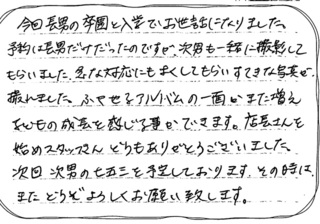 今回長男の卒園と入学でお世話になりました。
予約は長男だけだったのですが、次男も一緒に撮影して
もらいました。急な対応にもよくしてもらいすてきな写真が
撮れました。ふやせるアルバムの一面がまた増え
子どもの成長を感じる事ができます。店長さんを
始めスタッフさん どうもありがとうございました。
次回 次男の七五三を予定しております。その時は、
またどうぞよろしくお願い致します。